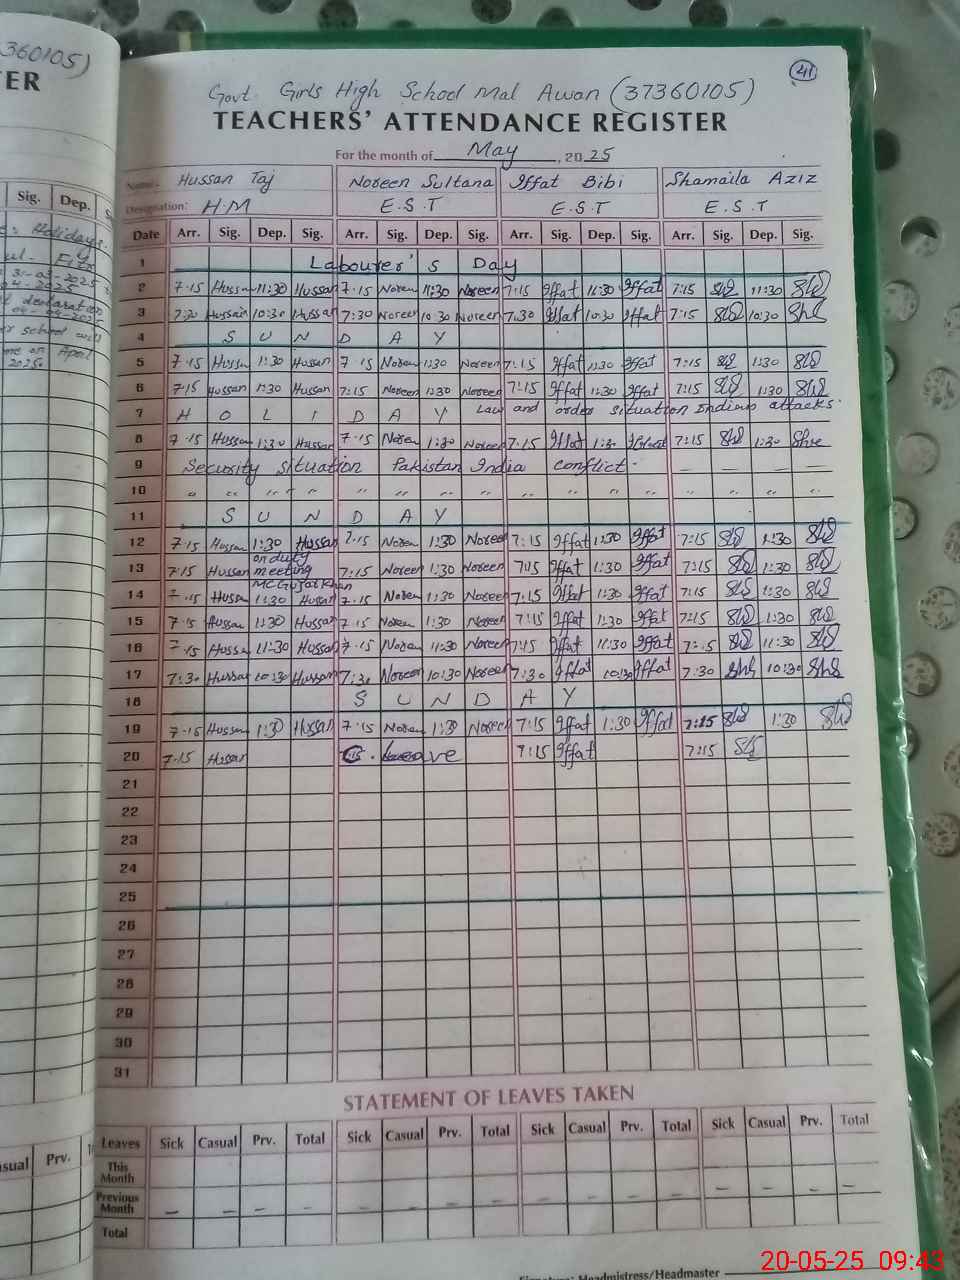 360105)
41
ER
Govt. Girls High School Mal Awan (37360105)
TEACHERS' ATTENDANCE REGISTER
For the month of May, 2025
Name: Hussan Taj Noreen Sultana Iffat Bibi Shamaila Aziz
Designation: H.M E.S.T E.S.T E.S.T
Sig. Dep.
Date Arr. Sig. Dep. Sig. Arr. Sig. Dep. Sig. Arr. Sig. Dep. Sig. Arr. Sig. Dep. Sig.
Holidays.
1 Labourer's Day
2 7.15 Hussan 11:30 Hussan 7.15 Noreen 11:30 Noreen 7:15 Iffat 11:30 Iffat 7:15 11:30
3 7:30 Hussan 10:30 Hussan 7:30 Noreen 10:30 Noreen 7:30 Iffat 10:30 Iffat 7:15 10:30
4 S U N D A Y
5 7.15 Hussan 1:30 Hussan 7.15 Noreen 1:30 Noreen 7:15 Iffat 1:30 Iffat 7:15 1:30
6 7.15 Hussan 1:30 Hussan 7:15 Noreen 1:30 Noreen 7:15 Iffat 1:30 Iffat 7:15 1:30
7 H O L I D A Y Law and order situation Indians attacks.
8 7.15 Hussan 1:30 Hussan 7.15 Noreen 1:30 Noreen 7:15 Iffat 1:30 7:15 1:30
9 Security situation Pakistan India conflict.
10 " " " " " " " " " " " " " " " "
11 S U N D A Y
12 7.15 Hussan 1:30 Hussan 7.15 Noreen 1:30 Noreen 7:15 Iffat 1:30 Iffat 7:15 1:30
13 7:15 Hussan on duty meeting MC Gujar Khan 7:15 Noreen 1:30 Noreen 7:15 Iffat 1:30 Iffat 7:15 1:30
14 7.15 Hussan 1:30 Hussan 7.15 Noreen 1:30 Noreen 7:15 Iffat 1:30 Iffat 7:15 1:30
15 7.15 Hussan 1:30 Hussan 7.15 Noreen 1:30 Noreen 7:15 Iffat 1:30 Iffat 7:15 1:30
16 7.15 Hussan 11:30 Hussan 7.15 Noreen 11:30 Noreen 7:15 Iffat 11:30 Iffat 7:15 11:30
17 7:30 Hussan 10:30 Hussan 7:30 Noreen 10:30 Noreen 7:30 Iffat 10:30 Iffat 7:30 10:30
18 S U N D A Y
19 7.15 Hussan 1:30 Hussan 7.15 Noreen 1:30 Noreen 7:15 Iffat 1:30 Iffat 7:15 1:30
20 7.15 Hussan C. Leave 7:15 Iffat 7:15
21
22
23
24
25
26
27
28
29
30
31
STATEMENT OF LEAVES TAKEN
Leaves Sick Casual Prv. Total Sick Casual Prv. Total Sick Casual Prv. Total Sick Casual Prv. Total
Prv.
This Month
Previous Month – – – – – – – – – – – – – – – –
Total
Headmistress/Headmaster
20-05-25 09:43